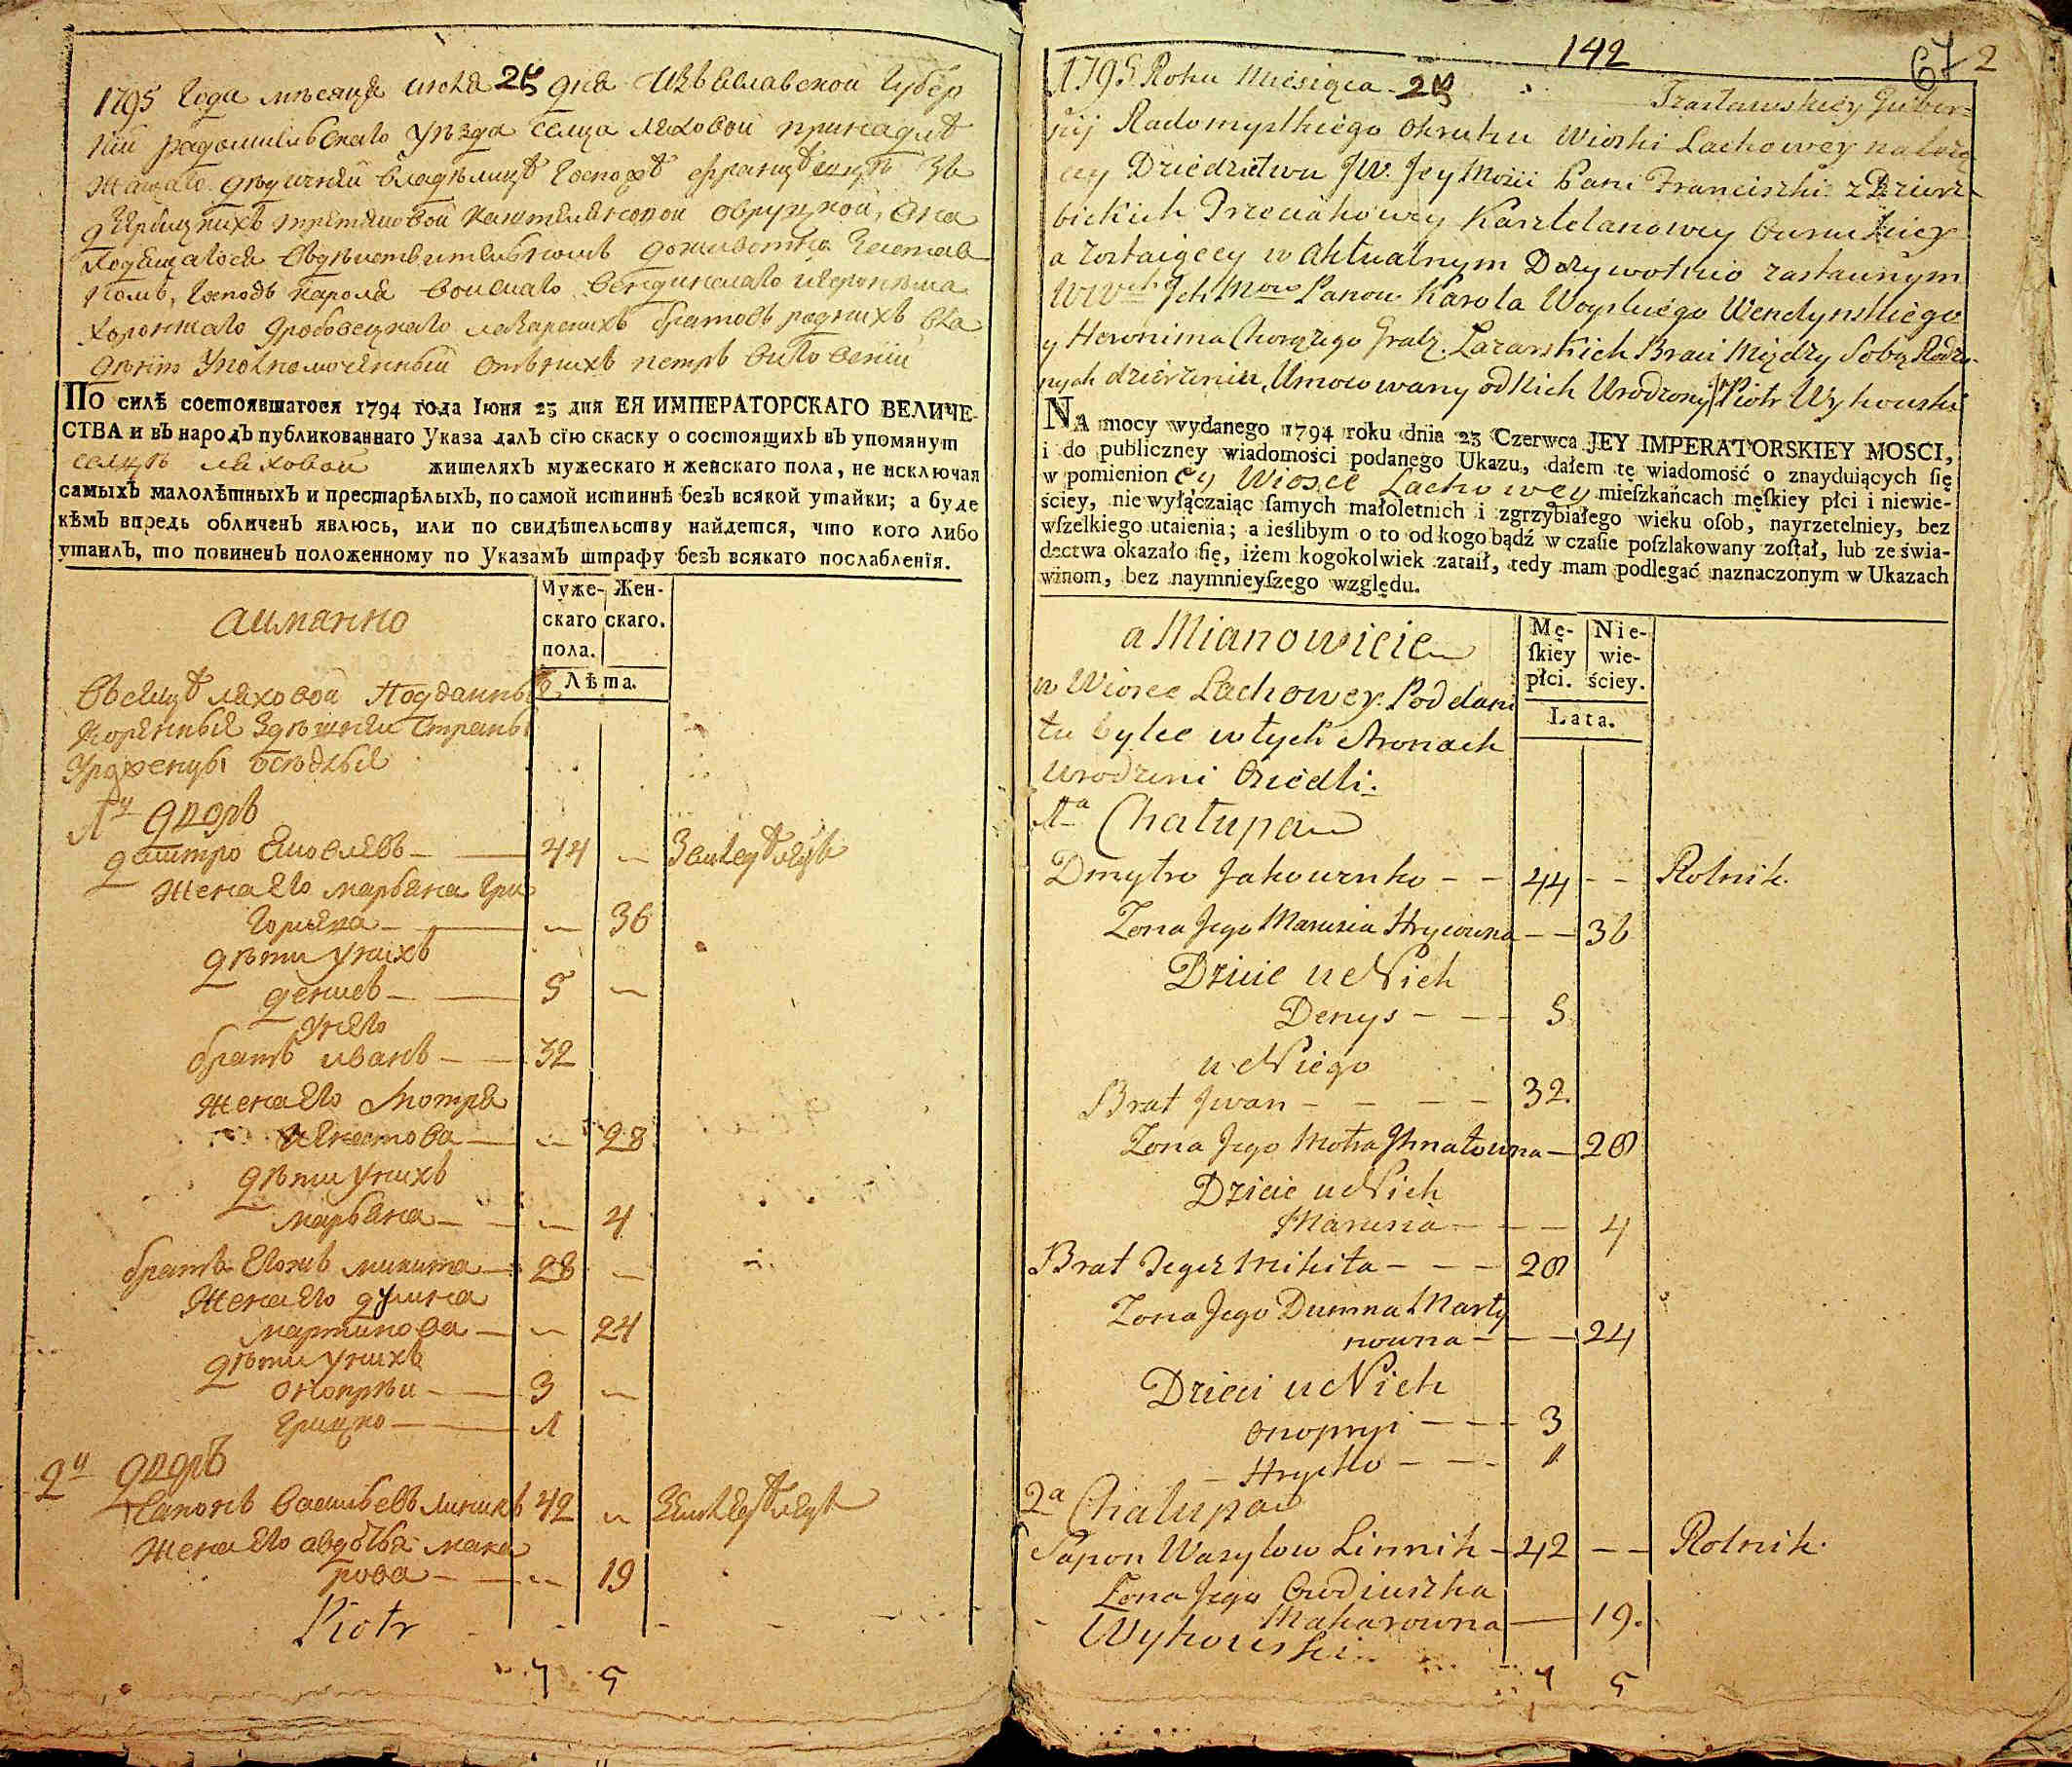 1795 года мѣсяца июля 25 дня Изъяславской Губер
нии радомислъскаго уѣзда селца ляховой принадле
жащаго дѣдичнѣй владѣлице Госпожѣ францѣшкѣ Зъ
ходящагося въдѣйствительномъ доживотно Застав
номъ, Господъ кароля войскаго вендинскаго иеронима
Хоронжаго лазарскихъ братовъ родныхъ вла
дѣнии Уполномоченный отънихъ петръ виговский
ПО силѣ состоявшагося 1794 года Іюня 23 дня ЕЯ ИМПЕРАТОРСКАГО ВЕЛИЧЕ-
СТВА и въ народъ публикованнаго Указа далъ сію скаску о состоящихъ въ упомянут
селцѣ ляховой жителяхъ мужескаго и женскаго пола, не исключая
самыхъ малолѣтныхъ и престарѣлыхъ, по самой истиннѣ безъ всякой утайки; а буде
кѣмъ впредь обличенъ явлюсь, или по свидѣтельству найдется, что кого либо
утаилъ, то повиненъ положенному по Указамъ штрафу безъ всякаго послабленія.
аимянно
Муже- Жен-
скаго скаго.
пола.
Лѣта.
Въселцѣ ляховой Подданныѣ
Коренныя Здѣшнѣй страны
Уроженцы осѣдлыя
1й дворъ
дмитро Яковлевъ — 44 — Земледѣлецъ
Жена Его марьяна Гри
горьева — — 36
дѣти Унихъ
денисъ — 5 —
Унего
братъ иванъ — 32
Жена Его Мотря
— — 28
дѣти Унихъ
марьяна — — 4
братъ Егожъ микита — 28 —
Жена Его думна
мартинова — — 24
дѣти Унихъ
онопрѣи — 3 —
Грицко — 1
2й дворъ
Сапонъ Васильевъ линникъ 42 — Земледѣлецъ
Жена Его авдотья мака
рова — — 19
Piotr
7 5
142
67 2
1795 Roku Miesiąca 25 Izasławskiey Guber=
nij Radomyslkiego Okruhu Wioski Lachowey należą
cey Dziedzictwu JW. Jey Mości Pani Franciszki z Dzierz
bickich Trzeciakowey Kasztelanowey Owruckiey
a zostaiącey w aktualnym Dożywotnio zastawnym
Ich Mow Panow Karola Woyskiego Wendynskiego
y Heronima Chorążego Gradz. Lazarskich Braci Między Sobą Rodzo-
nych dzierżeniu, Umocowany od Nich Urodzony Piotr Wyhowski
NA mocy wydanego 1794 roku dnia 23 Czerwca JEY IMPERATORSKIEY MOSCI,
i do publiczney wiadomości podanego Ukazu, dałem tę wiadomość o znayduiących się
w pomienion ey Wiosce Lachowey mieſzkańcach męſkiey płci i niewie-
ściey, nie wyłączaiąc ſamych małoletnich i zgrzybiałego wieku oſob, nayrzetelniey, bez
wſzelkiego utaienia; a ieślibym o to od kogo bądź w czaſie poſzlakowany zoſtał, lub ze świa-
dectwa okazało się, iżem kogokolwiek zataił, tedy mam podlegać naznaczonym w Ukazach
winom, bez naymnieyſzego względu.
a Mianowicie
Mę- Nie-
ſkiey wie-
płci. ściey.
Lata.
w Wiosce Lachowey Poddani
tu bylce w tych stronach
Urodzeni Osiedli.
1a Chałupa
Dmytro Jakowenko — 44 — Rolnik.
Zona Jego Marusia Hrycowna — 36
Dzicie u Nich
Denys — 5
u Niego
Brat Jwan — 32.
Zona Jego Motra Jhnatowna — 28
Dzicie u Nich
Marusia — 4
Brat Jegoz Mikita — 28
Zona Jego Dumna Marty
nowna — 24
Dzieci u Nich
Onopryi — 3
Hrycko — 1
2a Chałupa
Sapon Wasylow Linnik — 42 — Rolnik.
Zona Jego Owdiuszka
Makarowna — 19.
Wyhowski
7 5